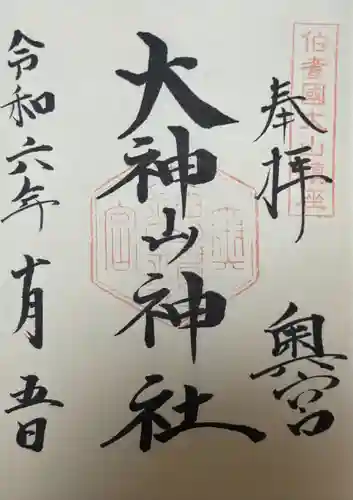 伯耆國大山鎮坐
奉拝
奥宮
大神山神社
令和六年十月五日